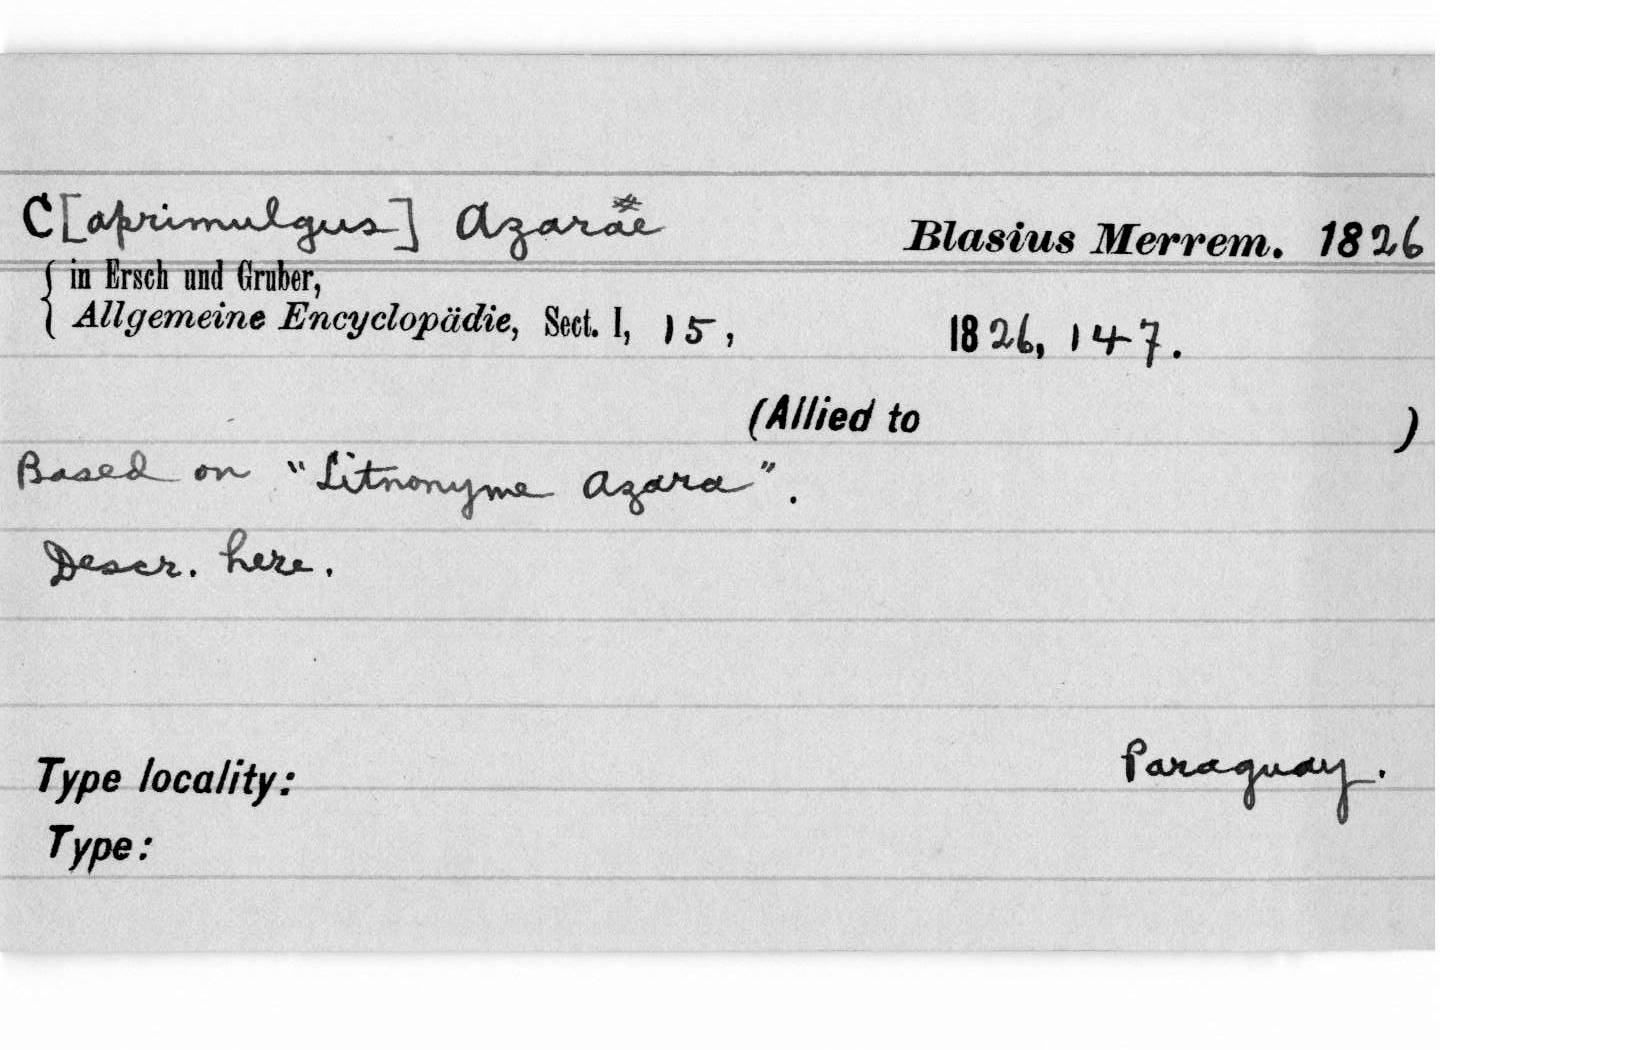 C[aprimulgus] Azarae Blasius Merrem. 1826
in Ersch und Gruber,
Allgemeine Encyclopädie, Sect. I, 15, 1826, 147.
(Allied to )
Based on "Litnonyme Azara".
Descr. here.
Type locality: Paraguay.
Type: